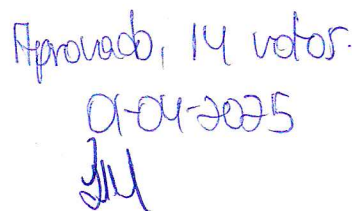 Aprovado, 14 votos.
01-04-2025